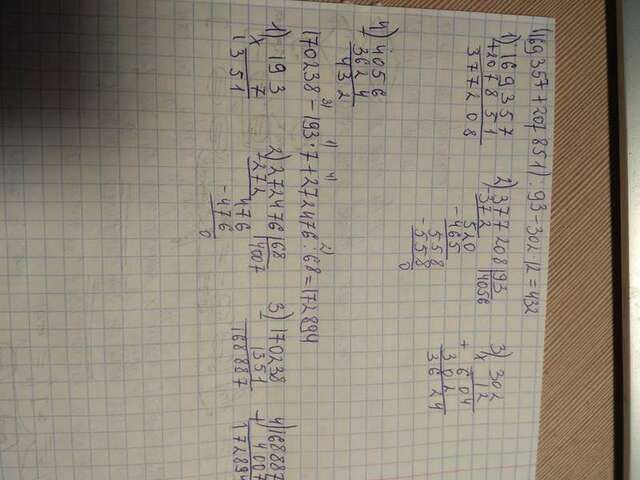 (169357+207851):93-302·12=432
1) 169357
+207851
377208
2) 377208|93
-372 |4056
520
-465
558
-558
0
3) 302
x 12
604
+ 302
3624
4) 4056
3624
432
3) 1) 4) 2)
170238-193·7+272476:68=172894
1) 193
x 7
1351
2) 272476|68
272 |4007
476
-476
0
3) 170238
1351
168887
4) 168887
+ 4007
172894